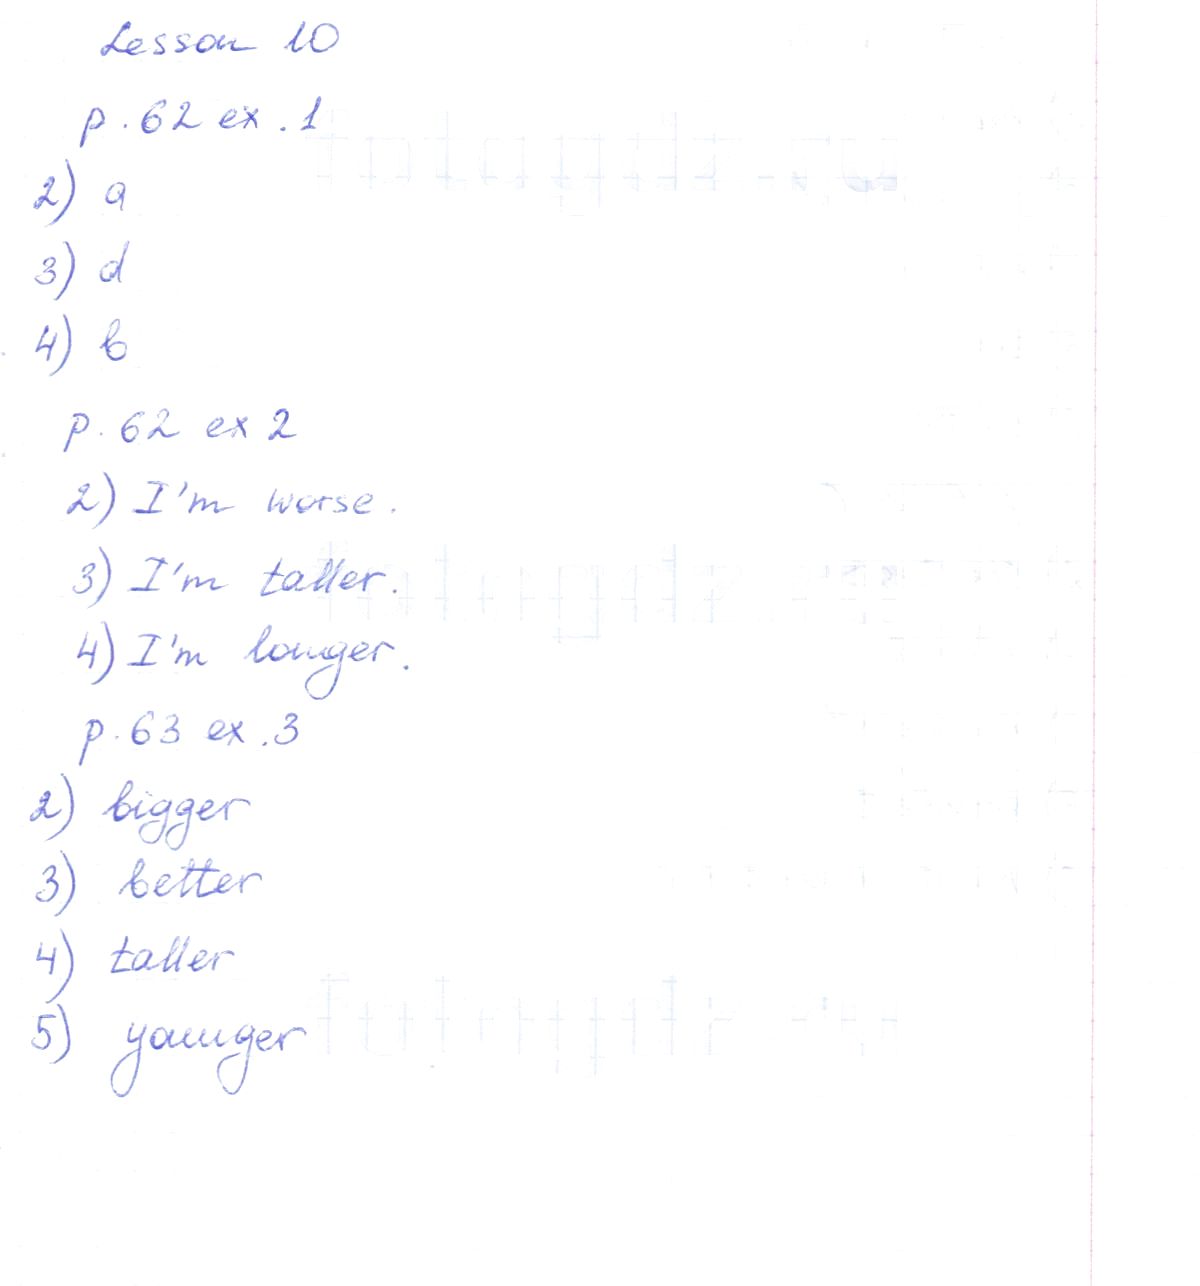 Lesson 10
p. 62 ex. 1
2) a
3) d
4) b
p. 62 ex 2
2) I'm worse.
3) I'm taller.
4) I'm longer.
p. 63 ex. 3
2) bigger
3) better
4) taller
5) younger